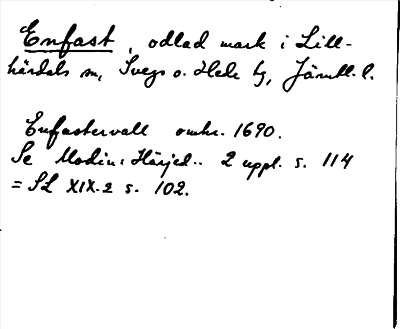 Enfast, odlad mark i Lill-
härdals sn, Svegs o. Hede tg, Jämtl. l.
Enfastervall omkr. 1690.
Se Modin: Härjed.. 2 uppl. s. 114
= SL XIX.2 s. 102.